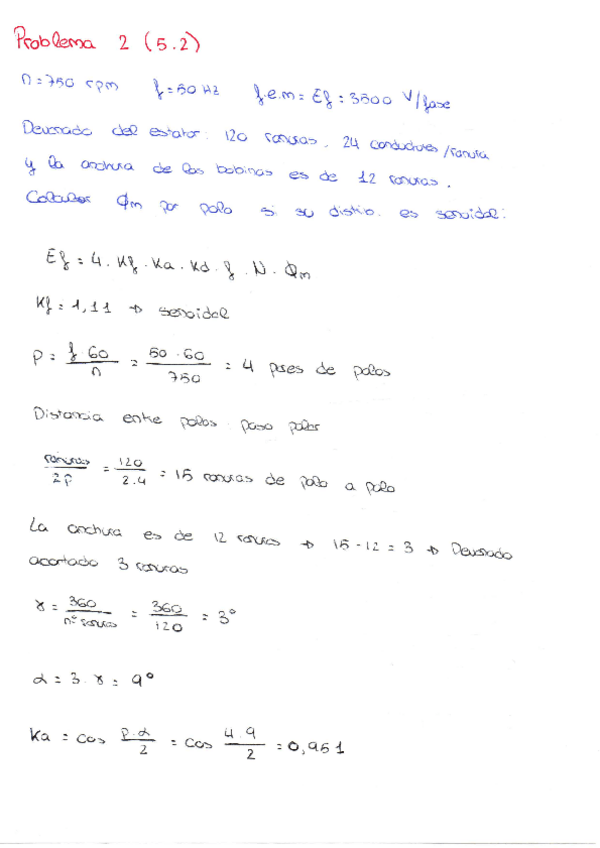 Problema 2 (5.2)
n=750 rpm f=50 Hz f.e.m=Ef=3500 V/fase
Devanado del estator: 120 ranuras, 24 conductores/ranura
y la anchura de las bobinas es de 12 ranuras.
Calcular Φm por polo si su distrib. es senoidal:
Ef = 4 . Kf . Ka . Kd . f . N . Φm
Kf = 1,11 → senoidal
P = f·60/n = 50·60/750 = 4 pares de polos
Distancia entre polos: paso polar
ranuras/2p = 120/2.4 = 15 ranuras de polo a polo
La anchura es de 12 ranuras → 15-12 = 3 → Devanado
acortado 3 ranuras
γ = 360/nº ranuras = 360/120 = 3°
α = 3·γ = 9°
Ka = cos P.α/2 = cos 4.9/2 = 0,951